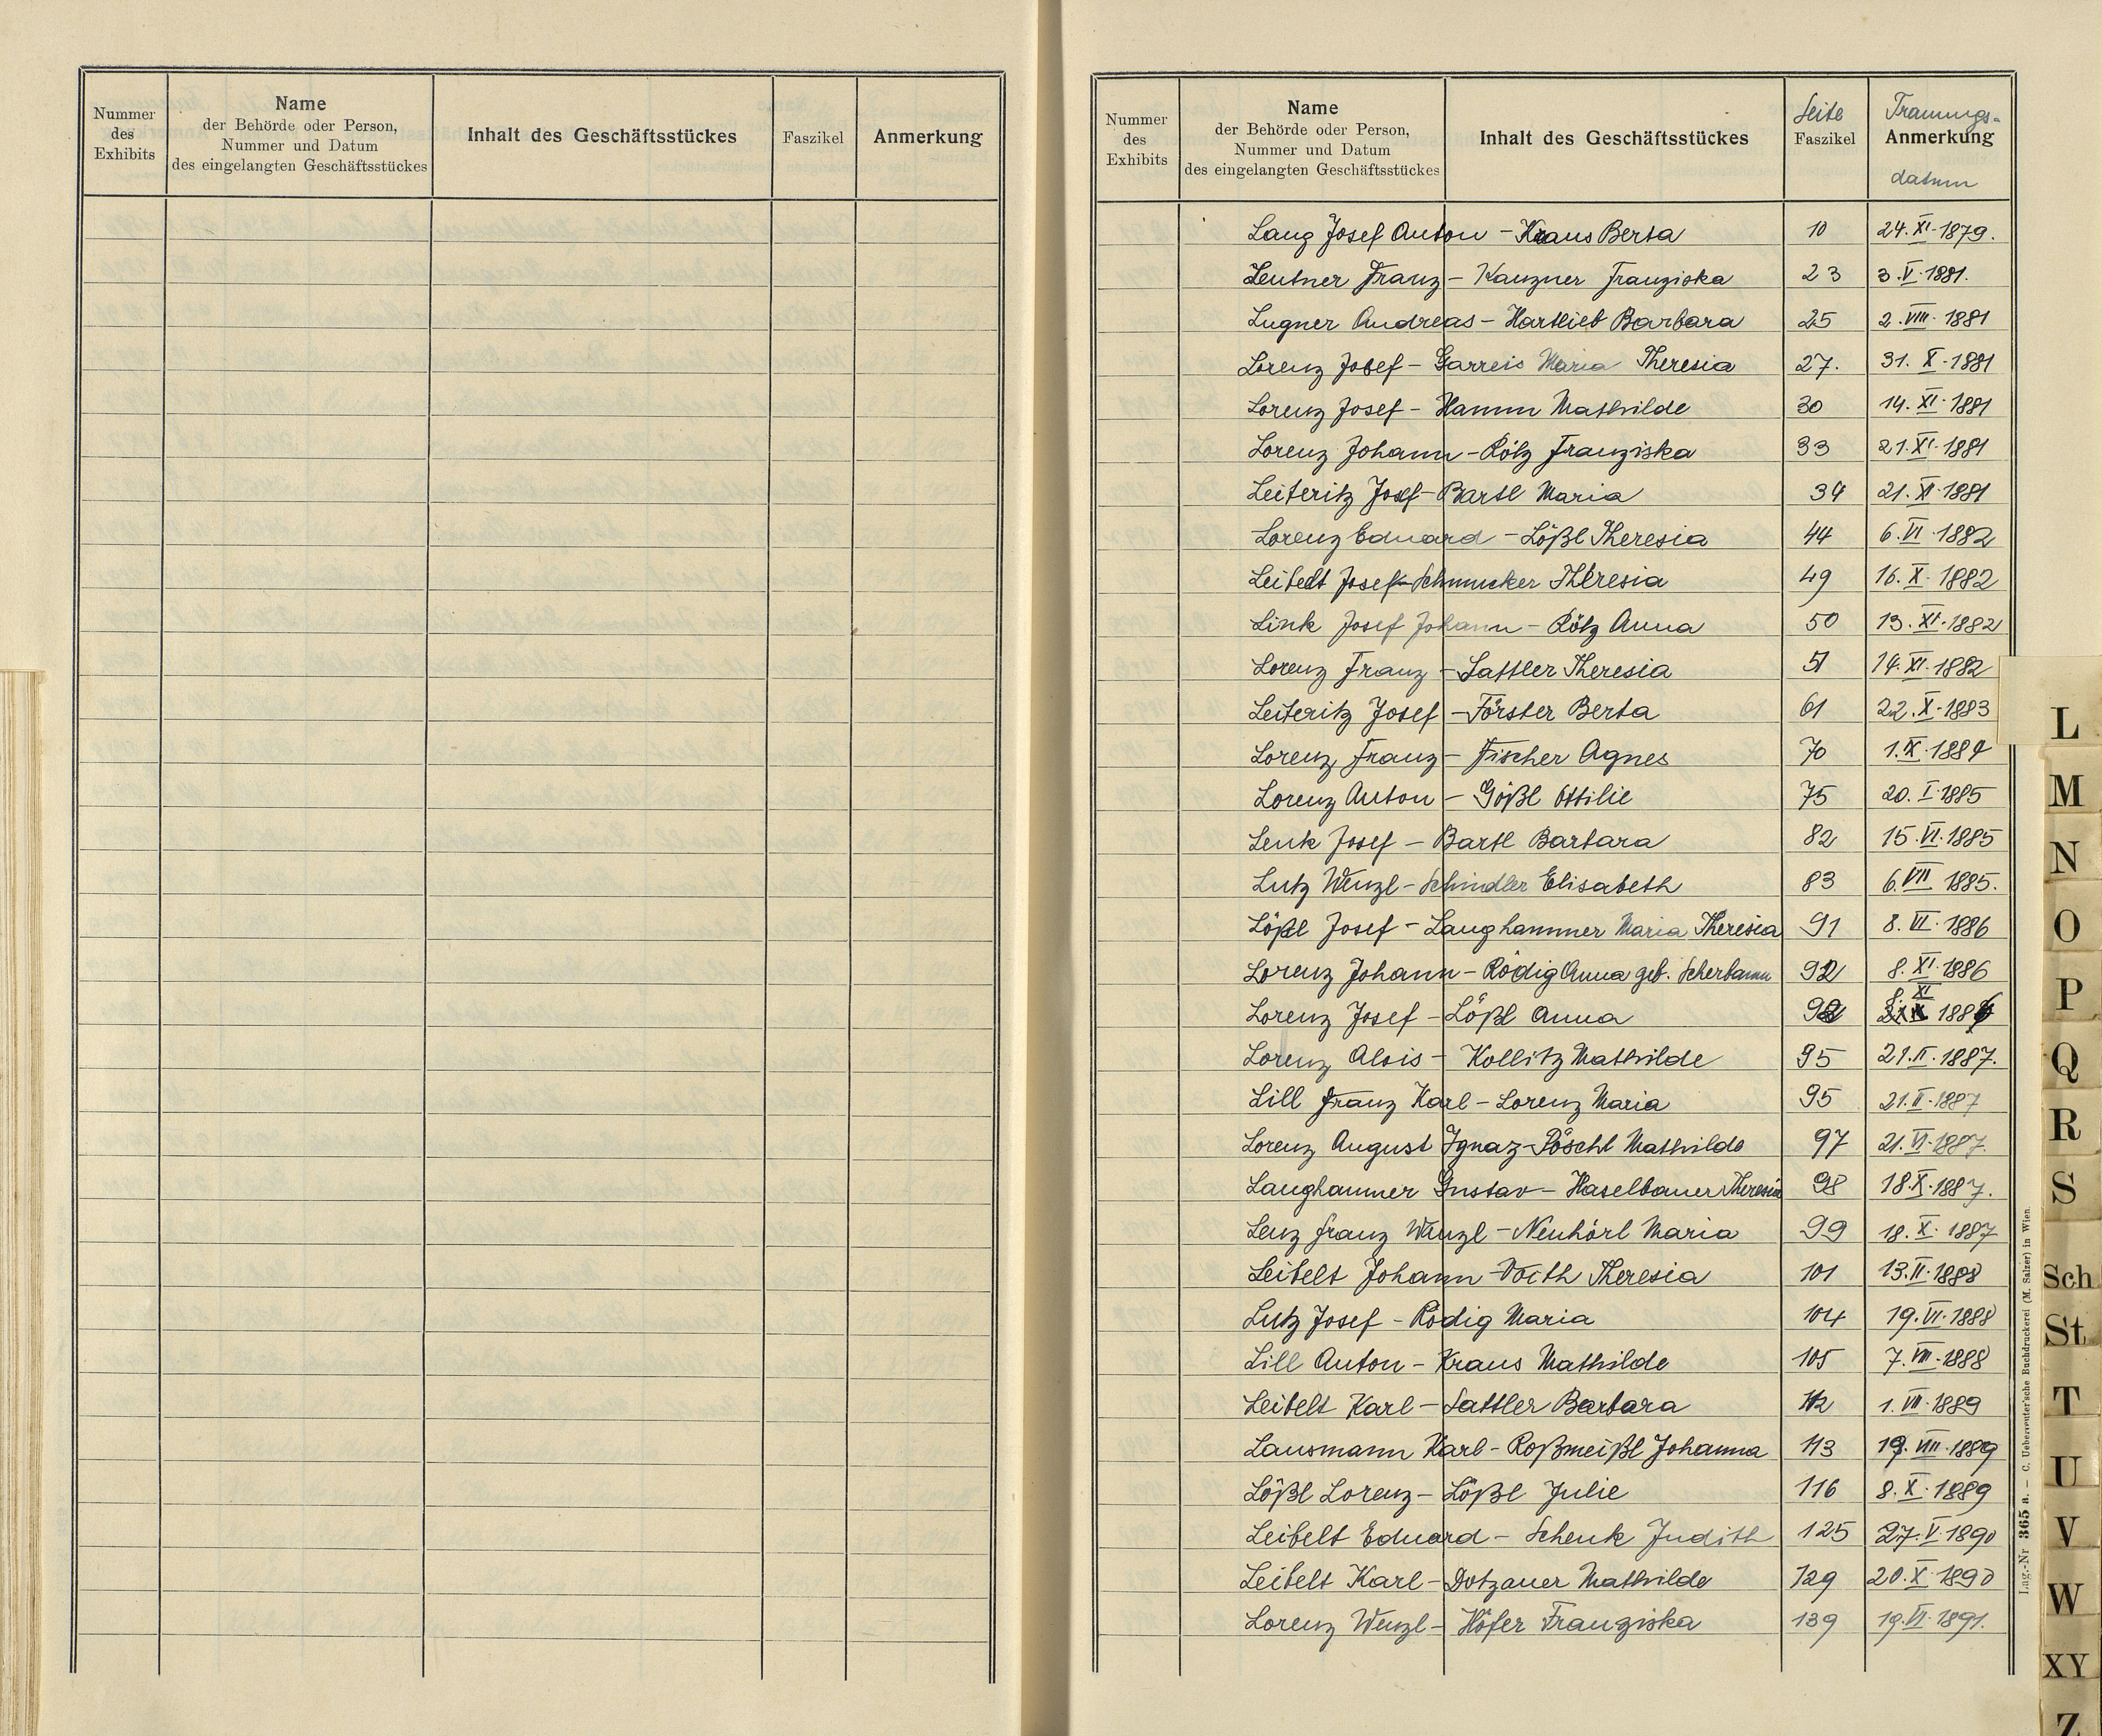 Nummer des Exhibits
Name
der Behörde oder Person,
Nummer und Datum
des eingelangten Geschäftsstückes
Inhalt des Geschäftsstückes
Faszikel
Anmerkung
Nummer des Exhibits
Name
der Behörde oder Person,
Nummer und Datum
des eingelangten Geschäftsstückes
Inhalt des Geschäftsstückes
Seite
Faszikel
Trauungs-
Anmerkung
datum
Lang Josef Anton - Kraus Berta 10 24.XI.1879.
Leutner Franz - Kanzner Franziska 23 3.V.1881.
Lugner Andreas - Hartlieb Barbara 25 2.VIII.1881
Lorenz Josef - Garreis Maria Theresia 27. 31.X.1881
Lorenz Josef - Hamm Mathilde 30 14.XI.1881
Lorenz Johann - Rölz Franziska 33 21.XI.1881
Leiteritz Josef - Bartl Maria 34 21.XI.1881
Lorenz Eduard - Lößl Theresia 44 6.VI.1882
Leibelt Josef - Schmucker Theresia 49 16.X.1882
Link Josef Johann - Rölz Anna 50 13.XI.1882
Lorenz Franz - Sattler Theresia 51 14.XI.1882
Leiteritz Josef - Förster Berta 61 22.X.1883
Lorenz Franz - Fischer Agnes 70 1.IX.1884
Lorenz Anton - Gößl Ottilie 75 20.I.1885
Lenk Josef - Bartl Barbara 82 15.VI.1885
Lutz Wenzl - Schindler Elisabeth 83 6.VII 1885.
Lößl Josef - Langhammer Maria Theresia 91 8.VI.1886
Lorenz Johann - Rödig Anna geb. Scherbaum 92 8.XI.1886
Lorenz Josef - Lößl Anna 92 8.XI 1886
Lorenz Alois - Kollitz Mathilde 95 21.II.1887.
Lill Franz Karl - Lorenz Maria 95 21.II.1887
Lorenz August Ignaz - Pöschl Mathilde 97 21.VI.1887.
Langhammer Gustav - Haselbauer Theresia 98 18.X.1887.
Lenz Franz Wenzl - Neuhörl Maria 99 18.X.1887
Leibelt Johann - Voith Theresia 101 13.II.1888
Lutz Josef - Rödig Maria 104 19.VI.1888
Lill Anton - Kraus Mathilde 105 7.VIII.1888
Leibelt Karl - Sattler Barbara 112 1.VII.1889
Lausmann Karl - Roßmeißl Johanna 113 19.VIII.1889
Lößl Lorenz - Lößl Julie 116 8.X.1889
Leibelt Eduard - Schenk Judith 125 27.V.1890
Leibelt Karl - Dotzauer Mathilde 129 20.X.1890
Lorenz Wenzl - Höfer Franziska 139 19.VI.1891.
Lag.-Nr 365 a. — C. Ueberreuter'sche Buchdruckerei (M. Salzer) in Wien.
L
M
N
O
P
Q
R
S
Sch
St
T
U
V
W
XY
Z